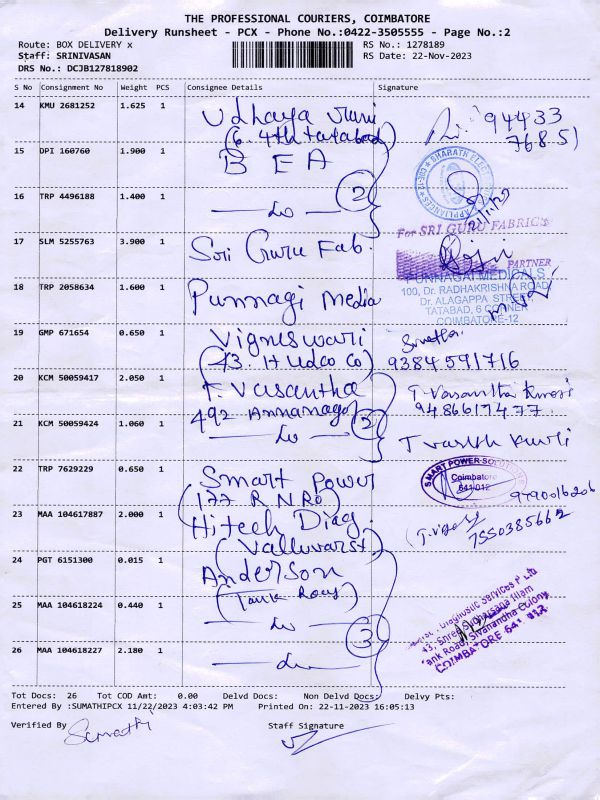 THE PROFESSIONAL COURIERS, COIMBATORE
Delivery Runsheet - PCX - Phone No.:0422-3505555 - Page No.:2
Route: BOX DELIVERY x RS No.: 1278189
Staff: SRINIVASAN RS Date: 22-Nov-2023
DRS No.: DCJB127818902
S No Consignment No Weight PCS Consignee Details Signature
14 KMU 2681252 1.625 1 Udhaya 94433
(6. 4th tatabad) 76851
15 DPI 160760 1.900 1 BEA
BHARATH ELECT
APPLIANCES
16 TRP 4496188 1.400 1 — Do — 2
For SRI GURU FABRICS
17 SLM 5255763 3.900 1 Sri Guru Fab.
PARTNER
18 TRP 2058634 1.600 1 Punnagi Media
PUNNAGAI MEDICALS
100, Dr. RADHAKRISHNA ROAD
Dr. ALAGAPPA STREET
TATABAD, 6 CORNER
COIMBATORE-12
19 GMP 671654 0.650 1 Vigneswari
(43. Hudco Co) 9384591716
20 KCM 50059417 2.050 1 T. Vasantha T. Vasantha
492 Annanagar 9486617477
21 KCM 50059424 1.060 1 — Do — 2
22 TRP 7629229 0.650 1 Smart Power
(177 R N Ro)
SMART POWER SOLUTIONS
Coimbatore
641 012
9790016206
23 MAA 104617887 2.000 1 Hitech Diag.
(Valluvarst) 7550385662
24 PGT 6151300 0.015 1 Anderson
(Tank Road)
25 MAA 104618224 0.440 1 — Do — 3
Diagnostic Services P Ltd
43, Sree Sudharsana Illam
Tank Road, Sivanandha Colony
COIMBATORE 641 012
26 MAA 104618227 2.180 1 — Do —
Tot Docs: 26 Tot COD Amt: 0.00 Delvd Docs: Non Delvd Docs: Delvy Pts:
Entered By :SUMATHIPCX 11/22/2023 4:03:42 PM Printed On: 22-11-2023 16:05:13
Verified By Sumathi Staff Signature